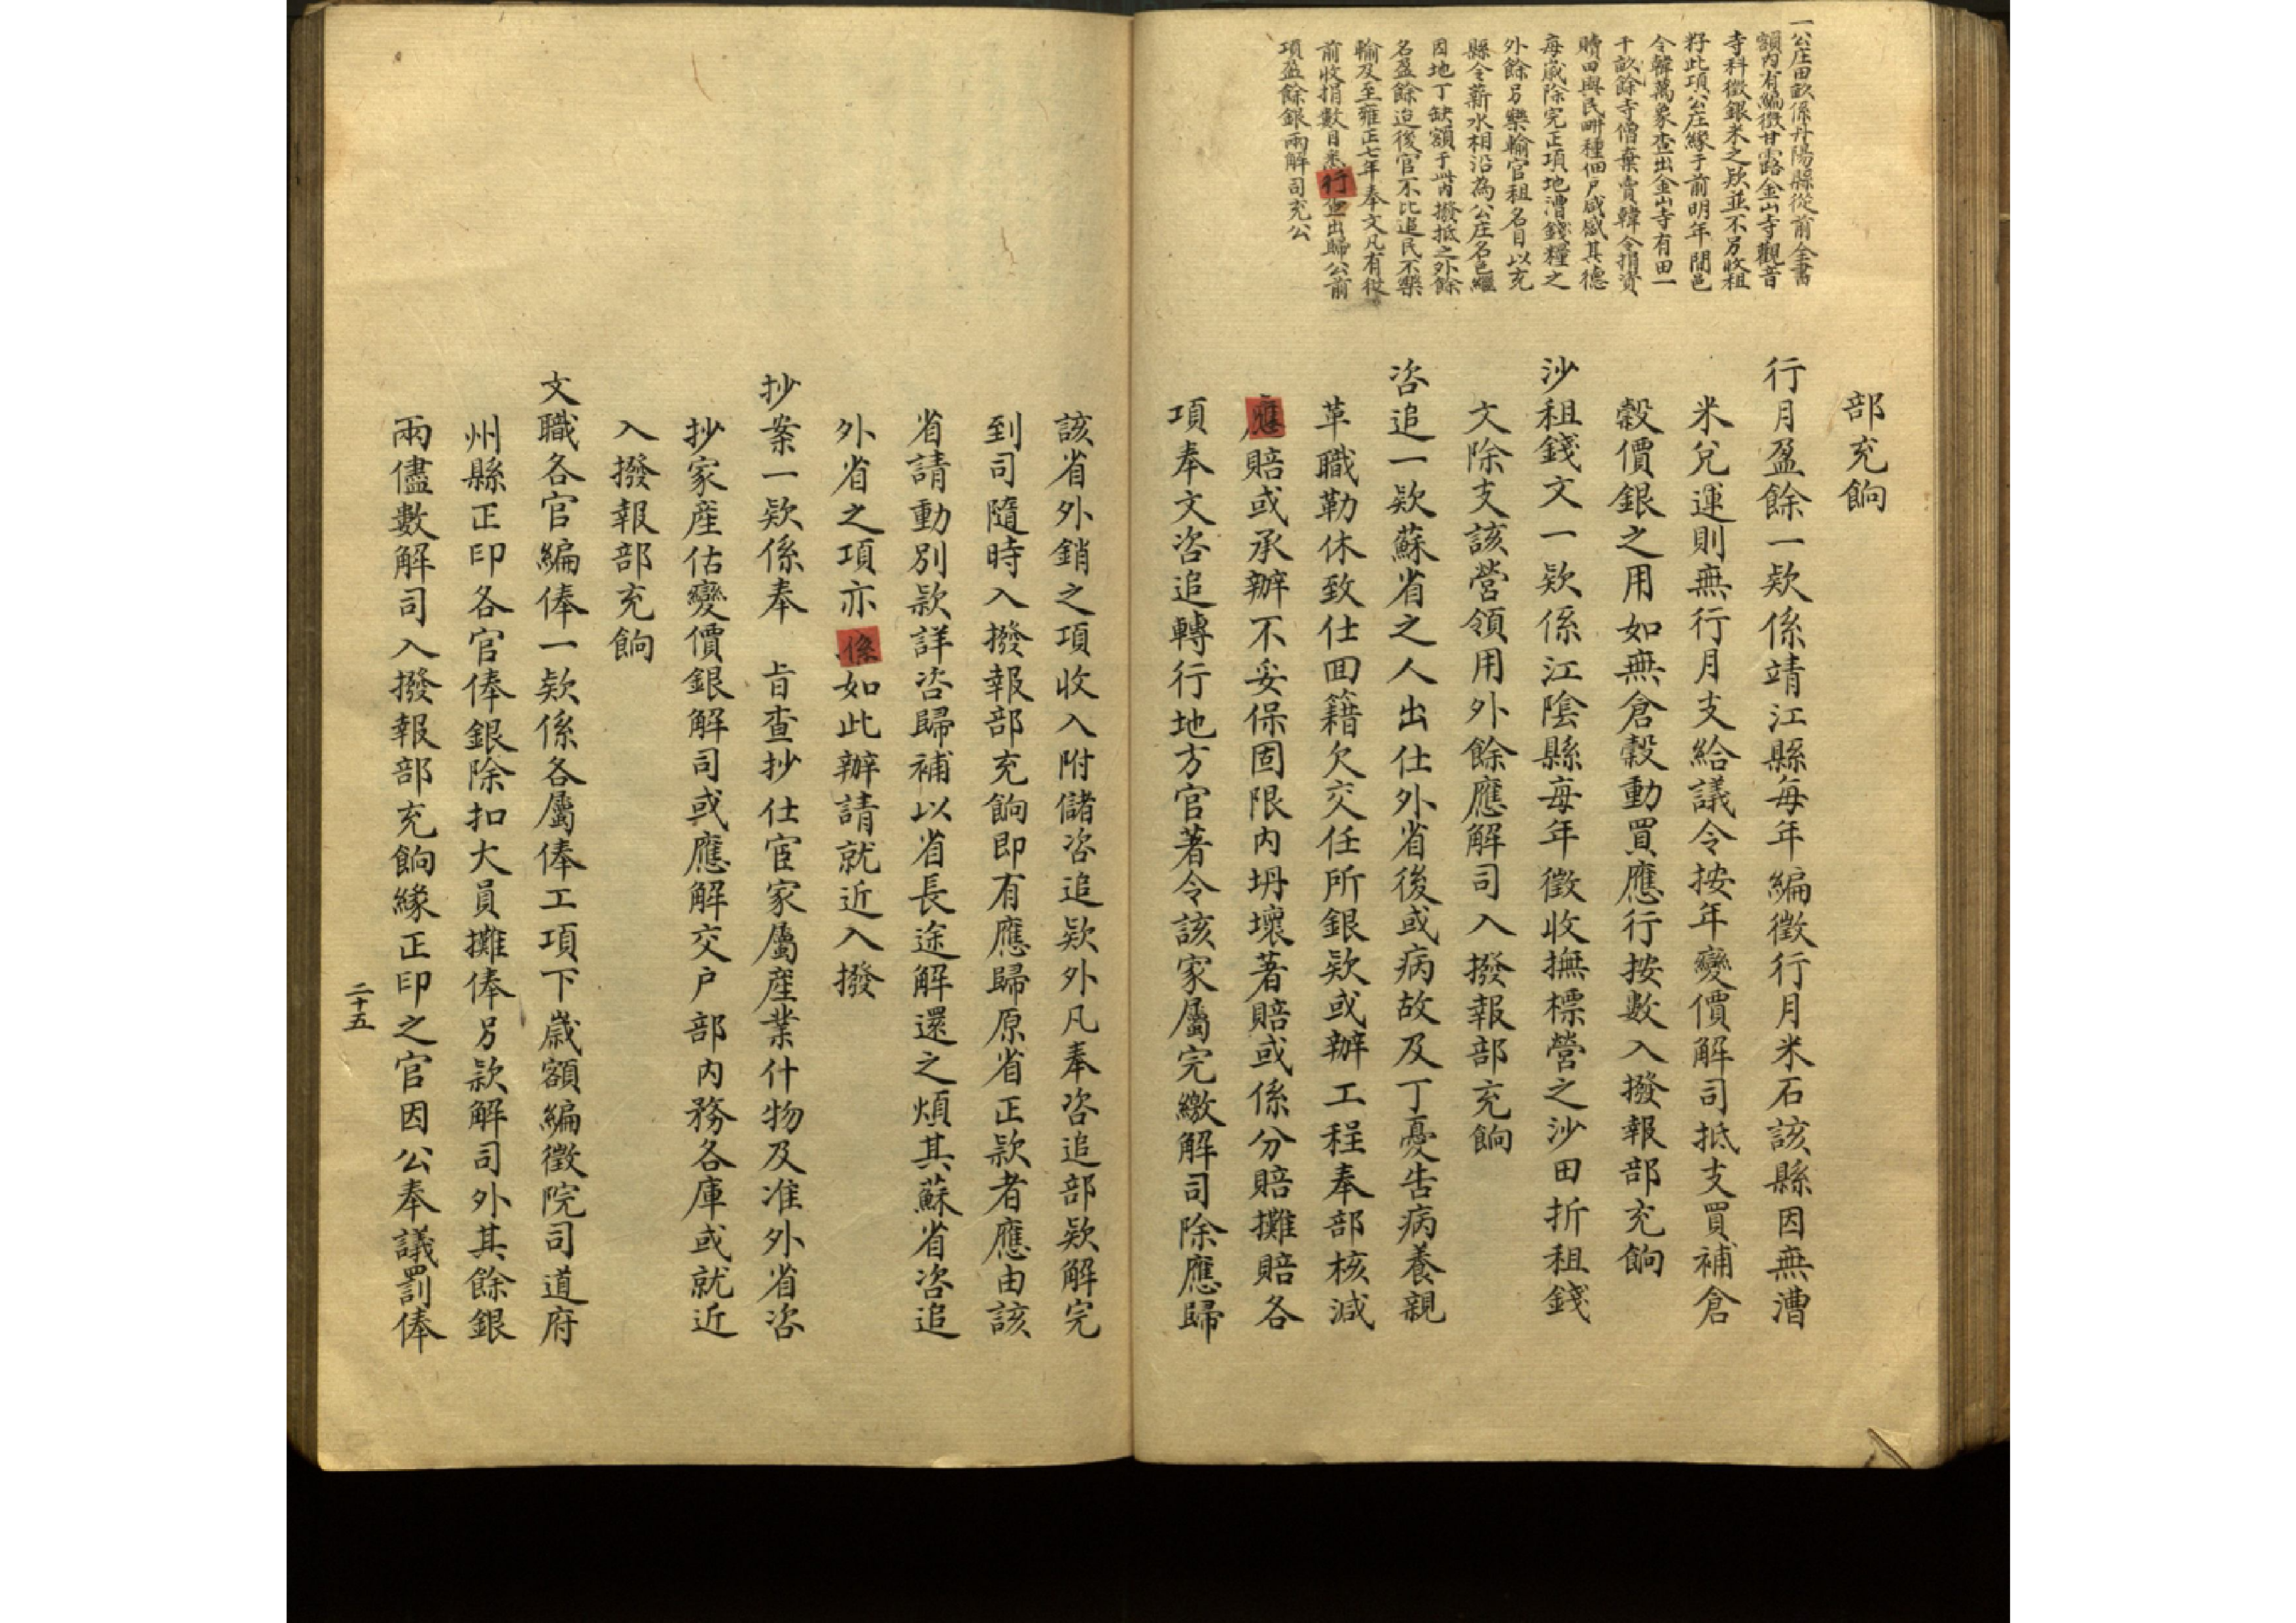 一公庄田畝係丹陽縣從前全書
額內有編徵甘露金山寺觀音
寺科徵銀米之欵並不另收租
籽此項公庄緣于前明年間邑
令韓萬象查出金山寺有田一
千畝餘寺僧棄賣韓令捐資
贖田與民畊種佃户咸感其德
每歲除完正項地漕錢糧之
外餘另樂輸官租名目以充
縣令薪水相沿為公庄名色繼
因地丁缺額于此內撥抵之外餘
名盈餘迨後官不比追民不樂
輸及至雍正七年奉文凡有從
前收捐數目悉行查出歸公前
項盈餘銀兩解司充公
部充餉
行月盈餘一欵係靖江縣每年編徵行月米石該縣因無漕
米兌運則無行月支給議令按年變價解司抵支買補倉
穀價銀之用如無倉穀動買應行按數入撥報部充餉
沙租錢文一欵係江陰縣每年徵收撫標營之沙田折租錢
文除支該營領用外餘應解司入撥報部充餉
咨追一欵蘇省之人出仕外省後或病故及丁憂告病養親
革職勒休致仕囬籍欠交任所銀欵或辦工程奉部核減
應賠或承辦不妥保固限內坍壞著賠或係分賠攤賠各
項奉文咨追轉行地方官著令該家屬完繳解司除應歸
該省外銷之項收入附儲咨追欵外凡奉咨追部欵解完
到司隨時入撥報部充餉即有應歸原省正欵者應由該
省請動別欵詳咨歸補以省長途解還之煩其蘇省咨追
外省之項亦係如此辦請就近入撥
抄案一欵係奉　旨查抄仕宦家屬產業什物及准外省咨
抄家產估變價銀解司或應解交户部內務各庫或就近
入撥報部充餉
文職各官編俸一欵係各屬俸工項下歲額編徵院司道府
州縣正印各官俸銀除扣大員攤俸另欵解司外其餘銀
兩儘數解司入撥報部充餉緣正印之官因公奉議罰俸
二十五